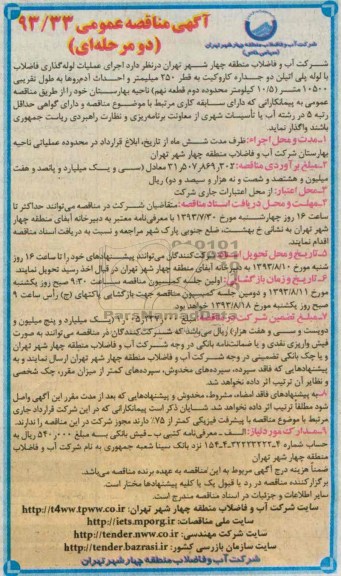 آگهی مناقصه عمومی ۹۳/۳۳
(دو مرحله‌ای)
شرکت آب و فاضلاب منطقه چهار شهر تهران
(سهامی خاص)
شرکت آب و فاضلاب منطقه چهار شهر تهران درنظر دارد اجرای عملیات لوله‌گذاری فاضلاب
با لوله پلی اتیلن دو جداره کاروگیت به قطر ۲۵۰ میلیمتر و احداث آدم‌روها به طول تقریبی
۱۰۵۰۰ متر (۱۰/۵ کیلومتر محدوده دوم قطعه نهم) ناحیه بهارستان خود را از طریق مناقصه
عمومی به پیمانکارانی که دارای سابقه کاری مرتبط با موضوع مناقصه و دارای گواهی حداقل
رتبه ۵ در رشته آب یا تأسیسات شهری از معاونت برنامه‌ریزی و نظارت راهبردی ریاست جمهوری
باشند واگذار نماید.
۱ـ مدت و محل اجراء: ظرف مدت شش ماه از تاریخ، ابلاغ قرارداد در محدوده عملیاتی ناحیه
بهارستان شرکت آب و فاضلاب منطقه چهار شهر تهران
۲ـ مبلغ برآوردی مناقصه: ۳۱,۵۰۷,۸۶۹,۳۰۲ معادل (سی و یک میلیارد و پانصد و هفت
میلیون و هشتصد و شصت و نه هزار و سیصد و دو) ریال
۳ـ محل اعتبار: از محل اعتبارات جاری شرکت
۴ـ مهلت و محل دریافت اسناد مناقصه: متقاضیان شرکت در مناقصه می‌توانند حداکثر تا
ساعت ۱۶ روز چهارشنبه مورخ ۱۳۹۳/۷/۳۰ با معرفی‌نامه معتبر به دبیرخانه آبفای منطقه چهار
شهر تهران به نشانی خ بهشت، ضلع جنوبی پارک شهر مراجعه و نسبت به دریافت اسناد مناقصه
اقدام نمایند.
۵ـ تاریخ و محل تحویل اسناد: شرکت‌کنندگان می‌توانند پیشنهادهای خود را تا ساعت ۱۶ روز
شنبه مورخ ۱۳۹۳/۸/۱۰ به دبیرخانه آبفای منطقه چهار شهر تهران در قبال اخذ رسید تحویل نمایند.
۶ـ تاریخ و زمان بازگشایی: اولین جلسه کمیسیون مناقصه ساعت ۹:۳۰ صبح روز یکشنبه
مورخ ۱۳۹۳/۸/۱۱ و دومین جلسه کمیسیون مناقصه جهت بازگشایی پاکتهای (ج) رأس ساعت ۹
صبح روز یکشنبه مورخ ۱۳۹۳/۸/۱۸ خواهد بود.
۷ـ مبلغ تضمین شرکت در مناقصه: مبلغ (یک میلیارد و پنج میلیون و
دویست و سی و هفت هزار) ریال می‌باشد که شرکت‌کنندگان در مناقصه می‌توانند به صورت
فیش واریزی نقدی و یا ضمانت‌نامه بانکی در وجه شرکت آب و فاضلاب منطقه چهار شهر تهران
و یا چک بانکی تضمینی در وجه شرکت آب و فاضلاب منطقه چهار شهر تهران ارسال نمایند و به
پیشنهادهایی که فاقد سپرده، سپرده‌های مخدوش، سپرده‌های کمتر از میزان مقرر، چک شخصی
و نظایر آن ترتیب اثر داده نخواهد شد.
۸ـ به پیشنهادهای فاقد امضاء، مشروط، مخدوش و پیشنهادهایی که بعد از مدت مقرر این آگهی واصل
شود مطلقاً ترتیب اثر داده نخواهد شد. شایان ذکر است پیمانکارانی که در این شرکت قرارداد جاری
مرتبط با موضوع مناقصه با پیشرفت فیزیکی کمتر از ۷۵٪ دارند مجوز شرکت در این مناقصه را ندارند.
۹ـ مدارک مورد نیاز: الف ـ معرفی‌نامه کتبی ب ـ فیش بانکی به مبلغ ۵۴۰,۰۰۰ ریال به
حساب شماره نزد بانک سینا شعبه جمهوری به نام شرکت آب و فاضلاب
منطقه چهار شهر تهران
ضمناً هزینه درج آگهی مربوط به این مناقصه به عهده برنده مناقصه می‌باشد.
برگزارکننده مناقصه در رد یا قبول یک یا کلیه پیشنهادها مختار است.
سایر اطلاعات و جزئیات در اسناد مناقصه مندرج است.
سایت شرکت آب و فاضلاب منطقه چهار شهر تهران: http://t4ww.tpww.co.ir
سایت ملی مناقصات: http://iets.mporg.ir
سایت شرکت مهندسی: http://tender.nww.co.ir
سایت سازمان بازرسی کشور: http://tender.bazrasi.ir
شرکت آب و فاضلاب منطقه چهار شهر تهران